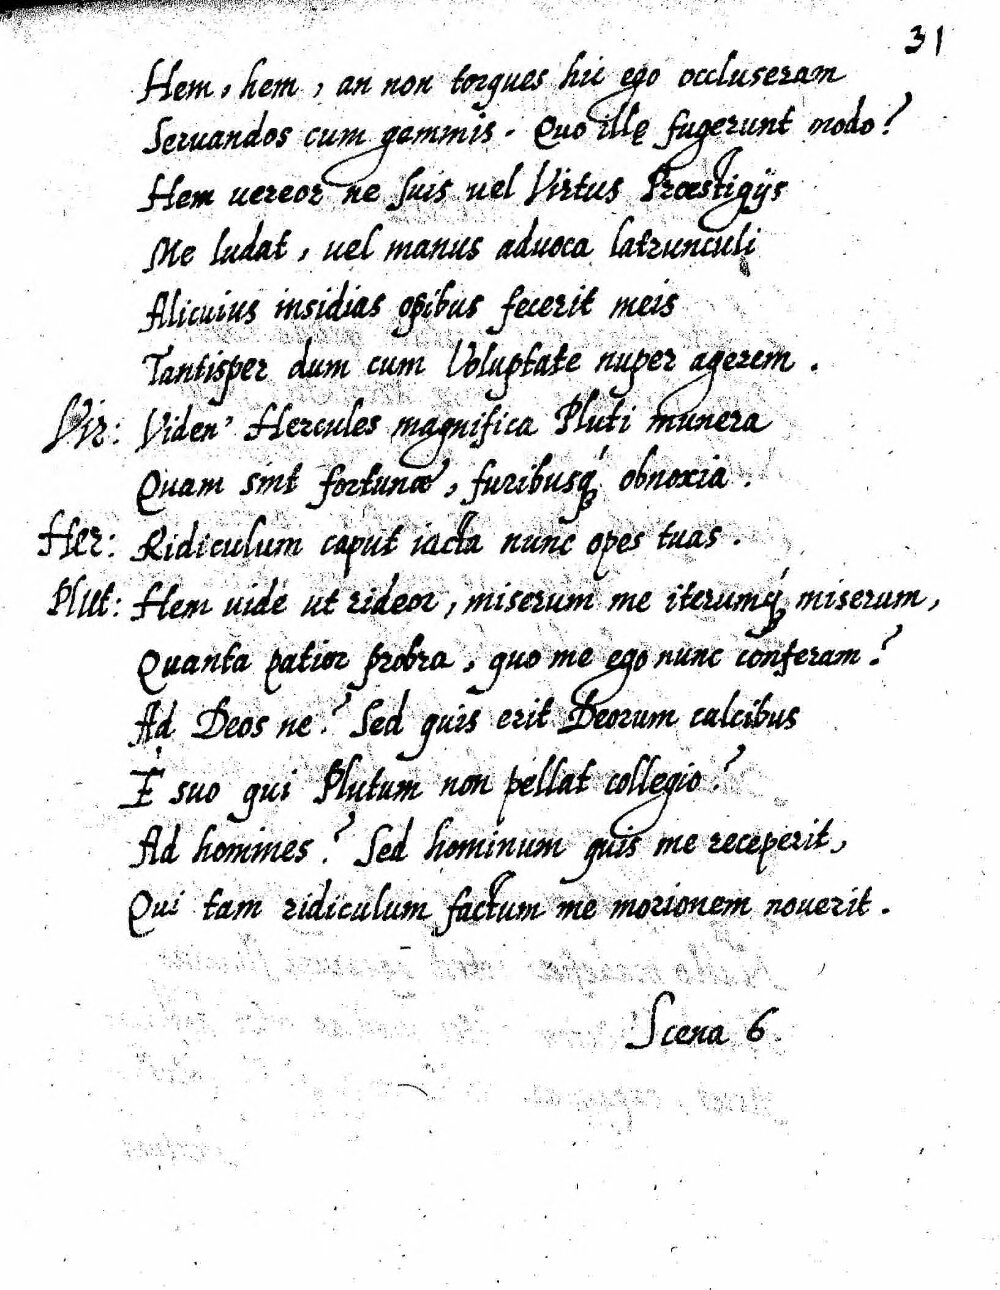 31
Hem, hem, an non torques hic ego occluseram
Seruandos cum gemmis. Quo illę fugerunt modo?
Hem uereor ne suis uel Virtus Præstigijs
Me ludat, uel manus aduoca latrunculi
Alicuius insidias opibus fecerit meis
Tantisper dum cum Voluptate nuper agerem.
Vir: Viden' Hercules magnifica Pluti munera
Quam sint fortunæ, furibusq́ obnoxia.
Her: Ridiculum caput iacta nunc opes tuas.
Plut: Hem uide ut rideor, miserum me iterumq́ miserum,
Quanta patior probra, quo me ego nunc conferam?
Ad Deos ne? Sed quis erit Deorum calcibus
È suo qui Plutum non pellat collegio?
Ad homines? Sed hominum quis me receperit,
Qui tam ridiculum factum me morionem nouerit.
Scena 6.